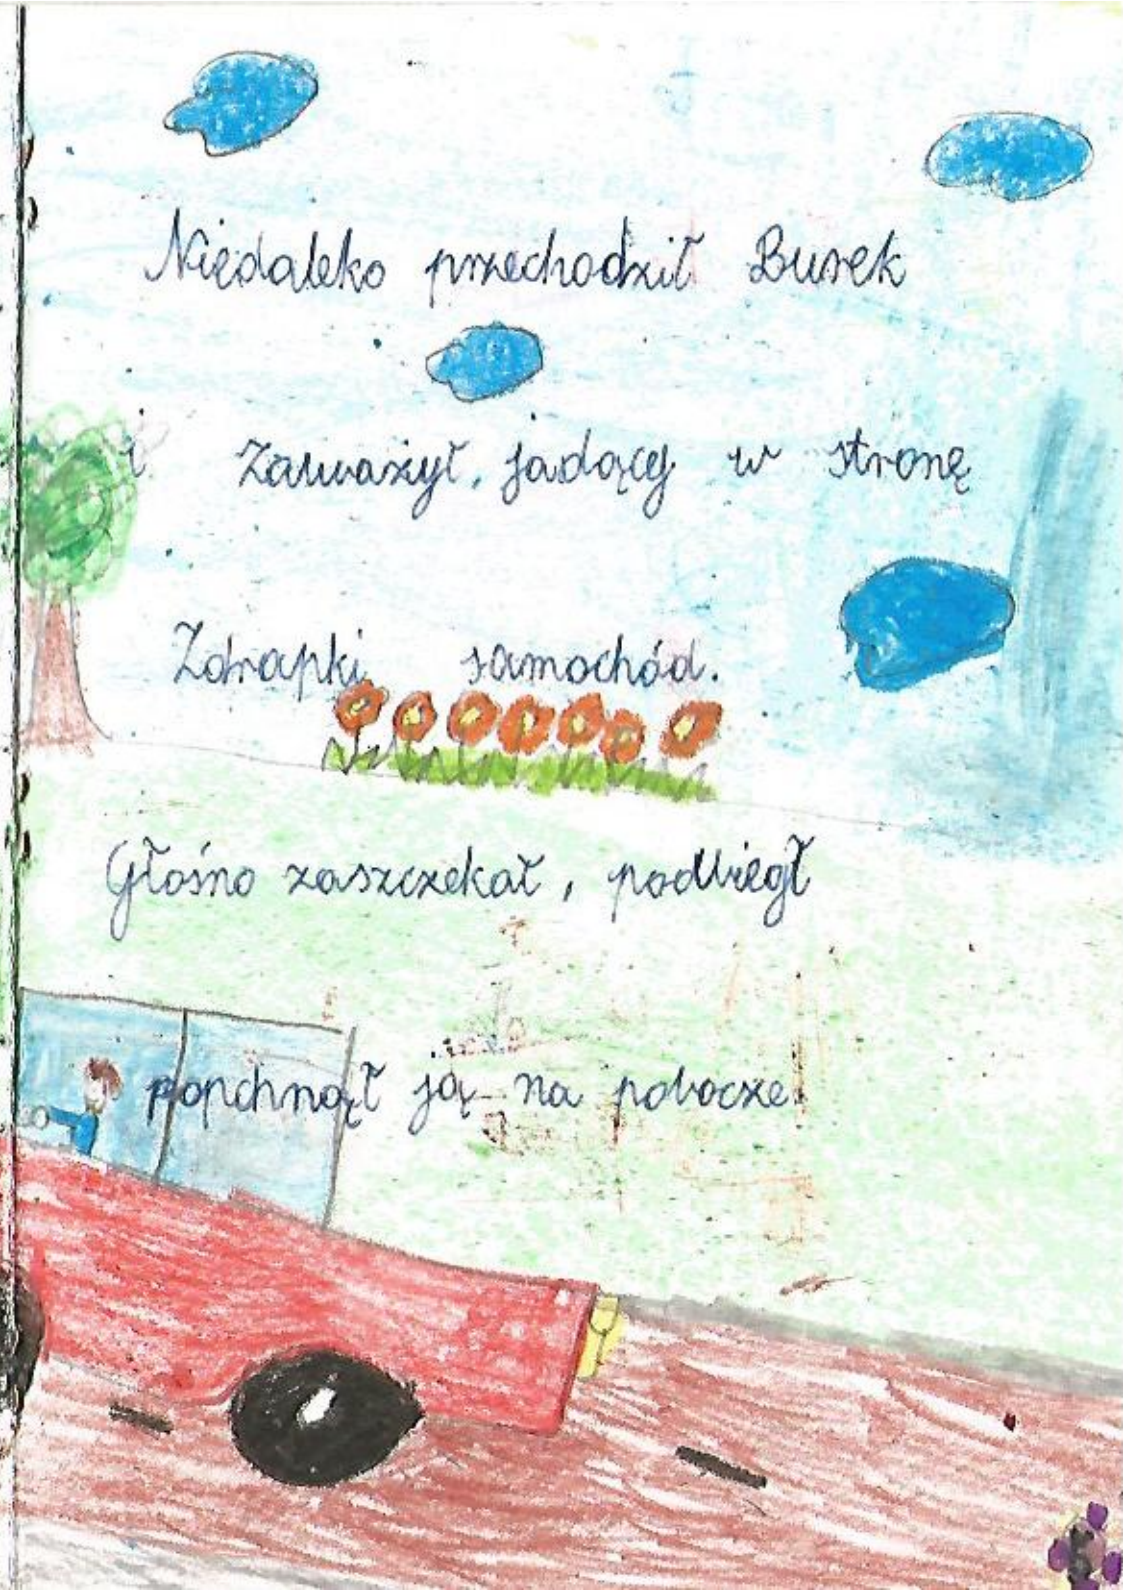 Niedaleko przechodził Burek
i zauważył, jadący w stronę
Zdrapki samochód.
Głośno zaszczekał, podbiegł
popchnął ją na pobocze.
5